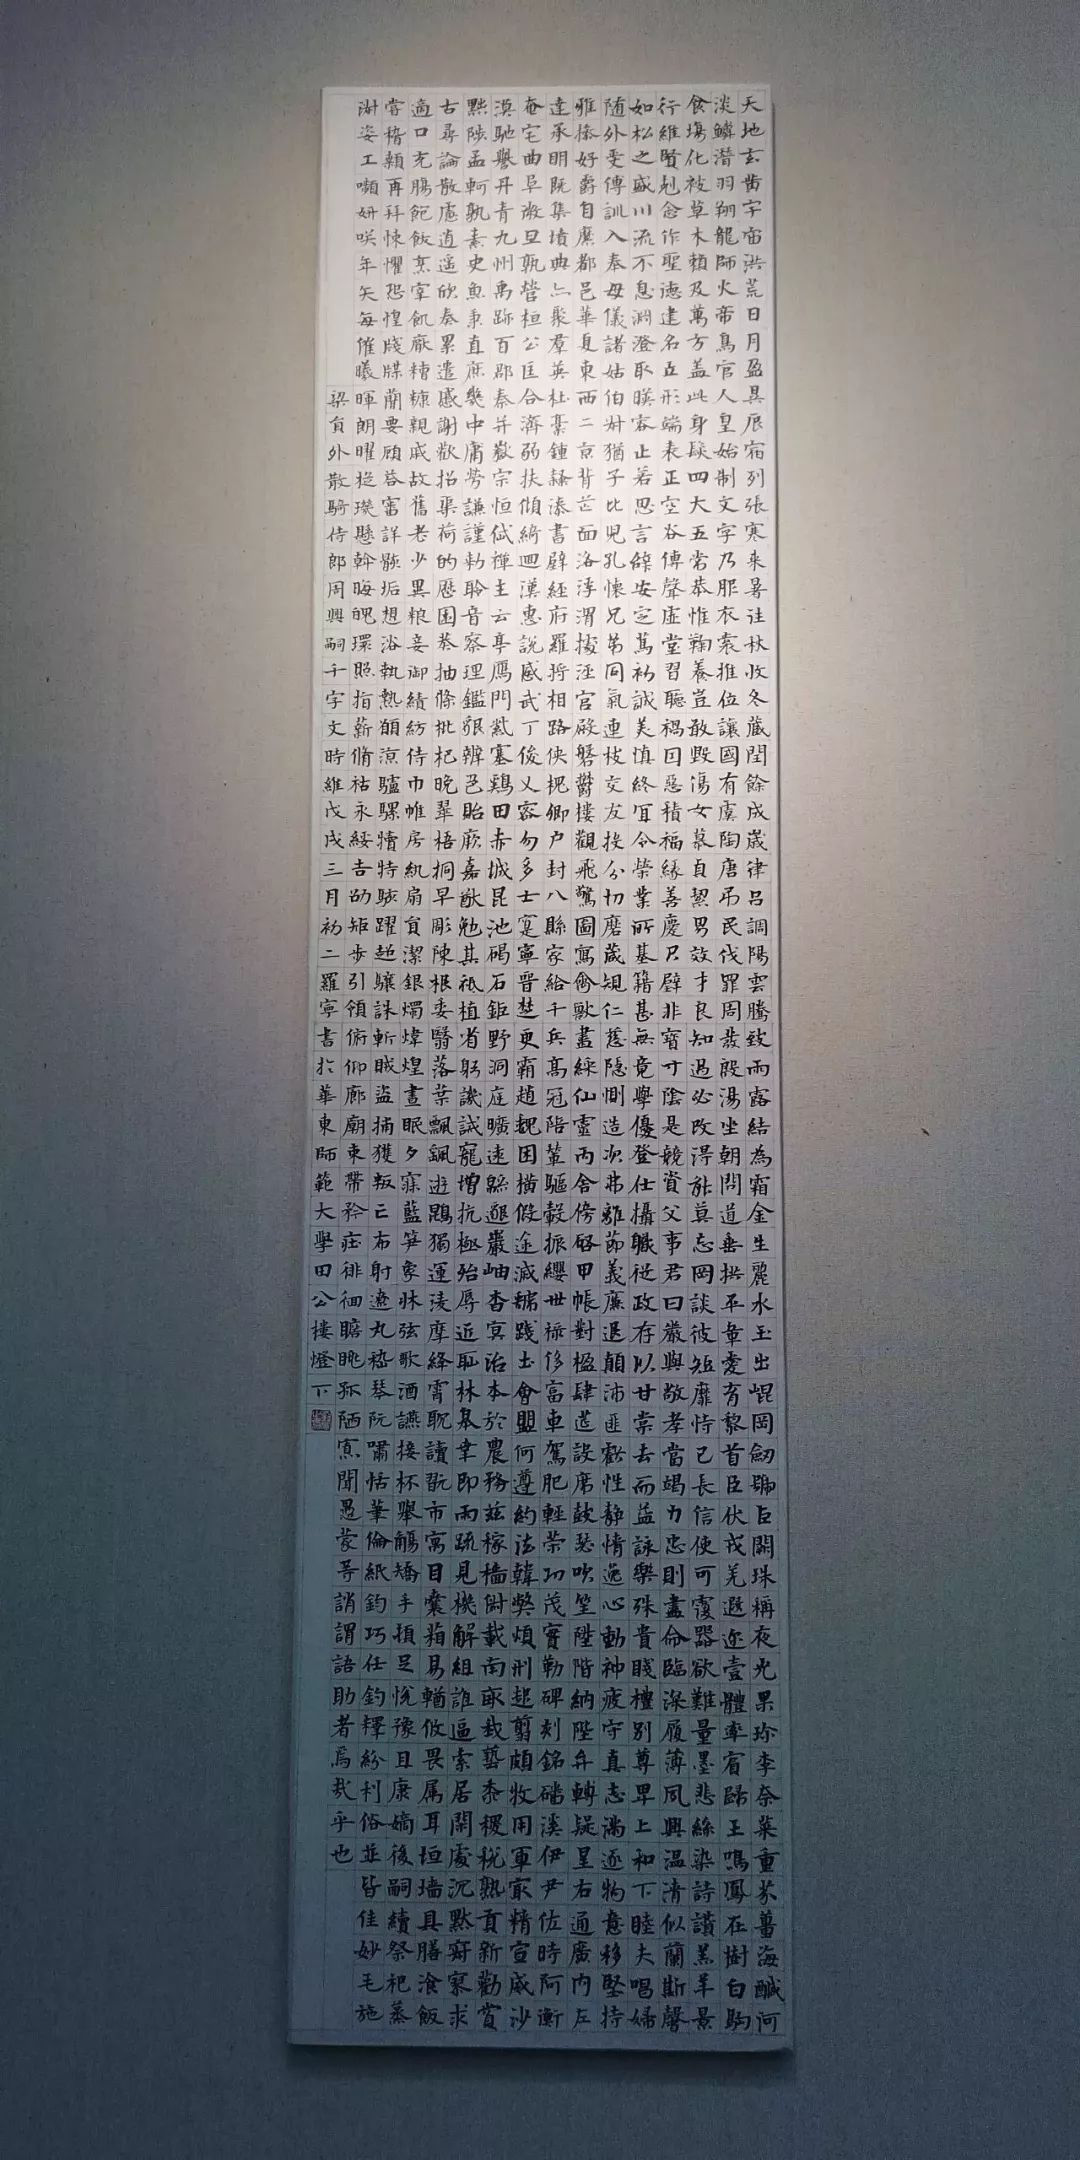 天地玄黄宇宙洪荒日月盈昃辰宿列張寒来暑往秋收冬藏閏餘成歲律呂調陽雲騰致雨露結為霜金生麗水玉出崐岡劒號巨闕珠稱夜光果珍李柰菜重芥薑海醎河
淡鱗潛羽翔龍師火帝鳥官人皇始制文字乃服衣裳推位讓國有虞陶唐弔民伐罪周發殷湯坐朝問道垂拱平章愛育黎首臣伏戎羌遐迩壹體率賓歸王鳴鳳在樹白駒
食場化被草木賴及萬方盖此身髮四大五常恭惟鞠養豈敢毀傷女慕貞絜男效才良知過必改得能莫忘罔談彼短靡恃己長信使可覆器欲難量墨悲絲染詩讃羔羊景
行維賢剋念作聖德建名立形端表正空谷傳聲虛堂習聽禍因惡積福緣善慶尺璧非寶寸陰是競資父事君曰嚴與敬孝當竭力忠則盡命臨深履薄夙興温凊似蘭斯馨
如松之盛川流不息淵澄取暎容止若思言辭安定篤初誠美慎終宜令榮業所基籍甚無竟學優登仕攝職從政存以甘棠去而益詠樂殊貴賤禮別尊卑上和下睦夫唱婦
随外受傅訓入奉母儀諸姑伯叔猶子比兒孔懷兄弟同氣連枝交友投分切磨箴規仁慈隱惻造次弗離節義廉退顛沛匪虧性静情逸心動神疲守真志滿逐物意移堅持
雅操好爵自縻都邑華夏東西二京背芒面洛浮渭據涇宮殿磐鬱樓觀飛驚圖寫禽獸畫綵仙靈丙舍傍啓甲帳對楹肆筵設席鼓瑟吹笙陞階納陛弁轉疑星右通廣内左
達承明既集墳典亦聚羣英杜稾鍾隸漆書壁經府羅將相路俠槐卿户封八縣家給千兵高冠陪輦驅轂振纓世禄侈富車駕肥輕策功茂實勒碑刻銘磻溪伊尹佐時阿衡
奄宅曲阜微旦孰營桓公匡合濟弱扶傾綺迴漢惠說感武丁俊乂密勿多士寔寧晉楚更霸趙魏困横假途滅虢踐土會盟何遵約法韓弊煩刑起翦頗牧用軍最精宣威沙
漠馳譽丹青九州禹跡百郡秦并嶽宗恒岱禪主云亭鴈門紫塞鷄田赤城昆池碣石鉅野洞庭曠遠綿邈巖岫杳冥治本於農務茲稼穡俶載南畝我藝黍稷稅熟貢新勸賞
黜陟孟軻敦素史魚秉直庶幾中庸勞謙謹勑聆音察理鑑貌辨色貽厥嘉猷勉其祗植省躬譏誡寵增抗極殆辱近恥林皋幸即兩疏見機解組誰逼索居閑處沉默寂寥求
古尋論散慮逍遥欣奏累遣慼謝歡招渠荷的歷園莽抽條枇杷晚翠梧桐早彫陳根委翳落葉飄颻遊鵾獨運凌摩絳霄耽讀翫市寓目囊箱易輶攸畏属耳垣墙具膳飡飯
適口充腸飽飫烹宰飢厭糟糠親戚故舊老少異粮妾御績紡侍巾帷房紈扇員潔銀燭煒煌晝眠夕寐藍笋象牀弦歌酒讌接杯舉觴矯手頓足悅豫且康嫡後嗣續祭祀蒸
甞稽顙再拜悚懼恐惶牋牒簡要顧荅審詳骸垢想浴執熱願涼驢騾犢特駭躍超驤誅斬賊盜捕獲叛亡布射遼丸嵇琴阮嘯恬筆倫紙鈞巧任釣釋紛利俗並皆佳妙毛施
淑姿工嚬妍咲年矢每催曦暉朗曜旋璣懸斡晦魄環照指薪脩祜永綏吉劭矩步引領俯仰廊廟束帶矜莊徘徊瞻眺孤陋寡聞愚蒙等誚謂語助者焉哉乎也
梁員外散騎侍郎周興嗣千字文時維戊戌三月初二羅寧書於華東師範大學田公樓燈下